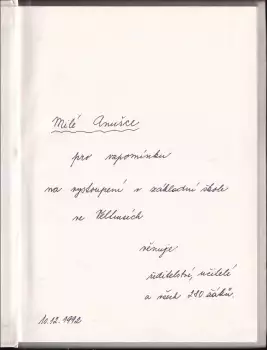 Milé Anušce
pro vzpomínku
na vystoupení v základní škole
ve
věnuje
ředitelství, učitelé
a všech 210 žáků.
10.12.1992